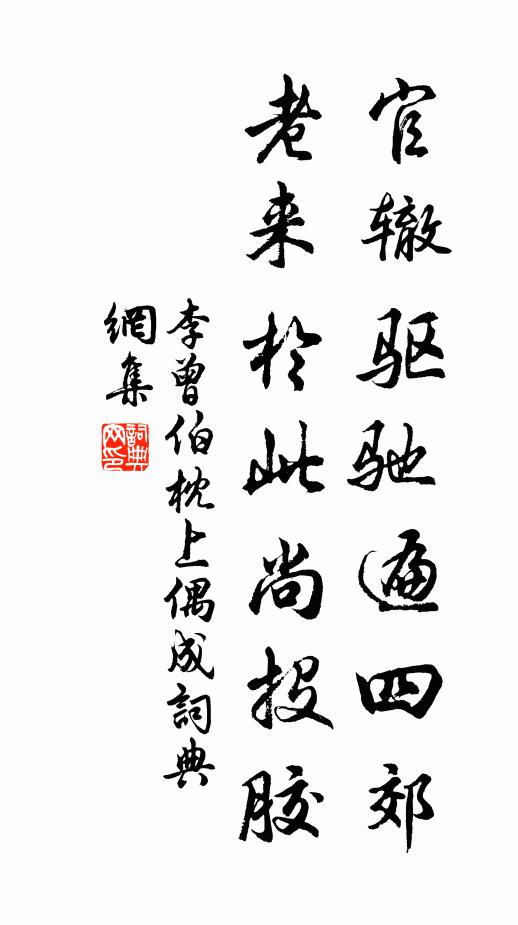 官辙驱驰遍四郊
老来於此尚投胶
李曾伯枕上偶成詞典
網集
詞典網印